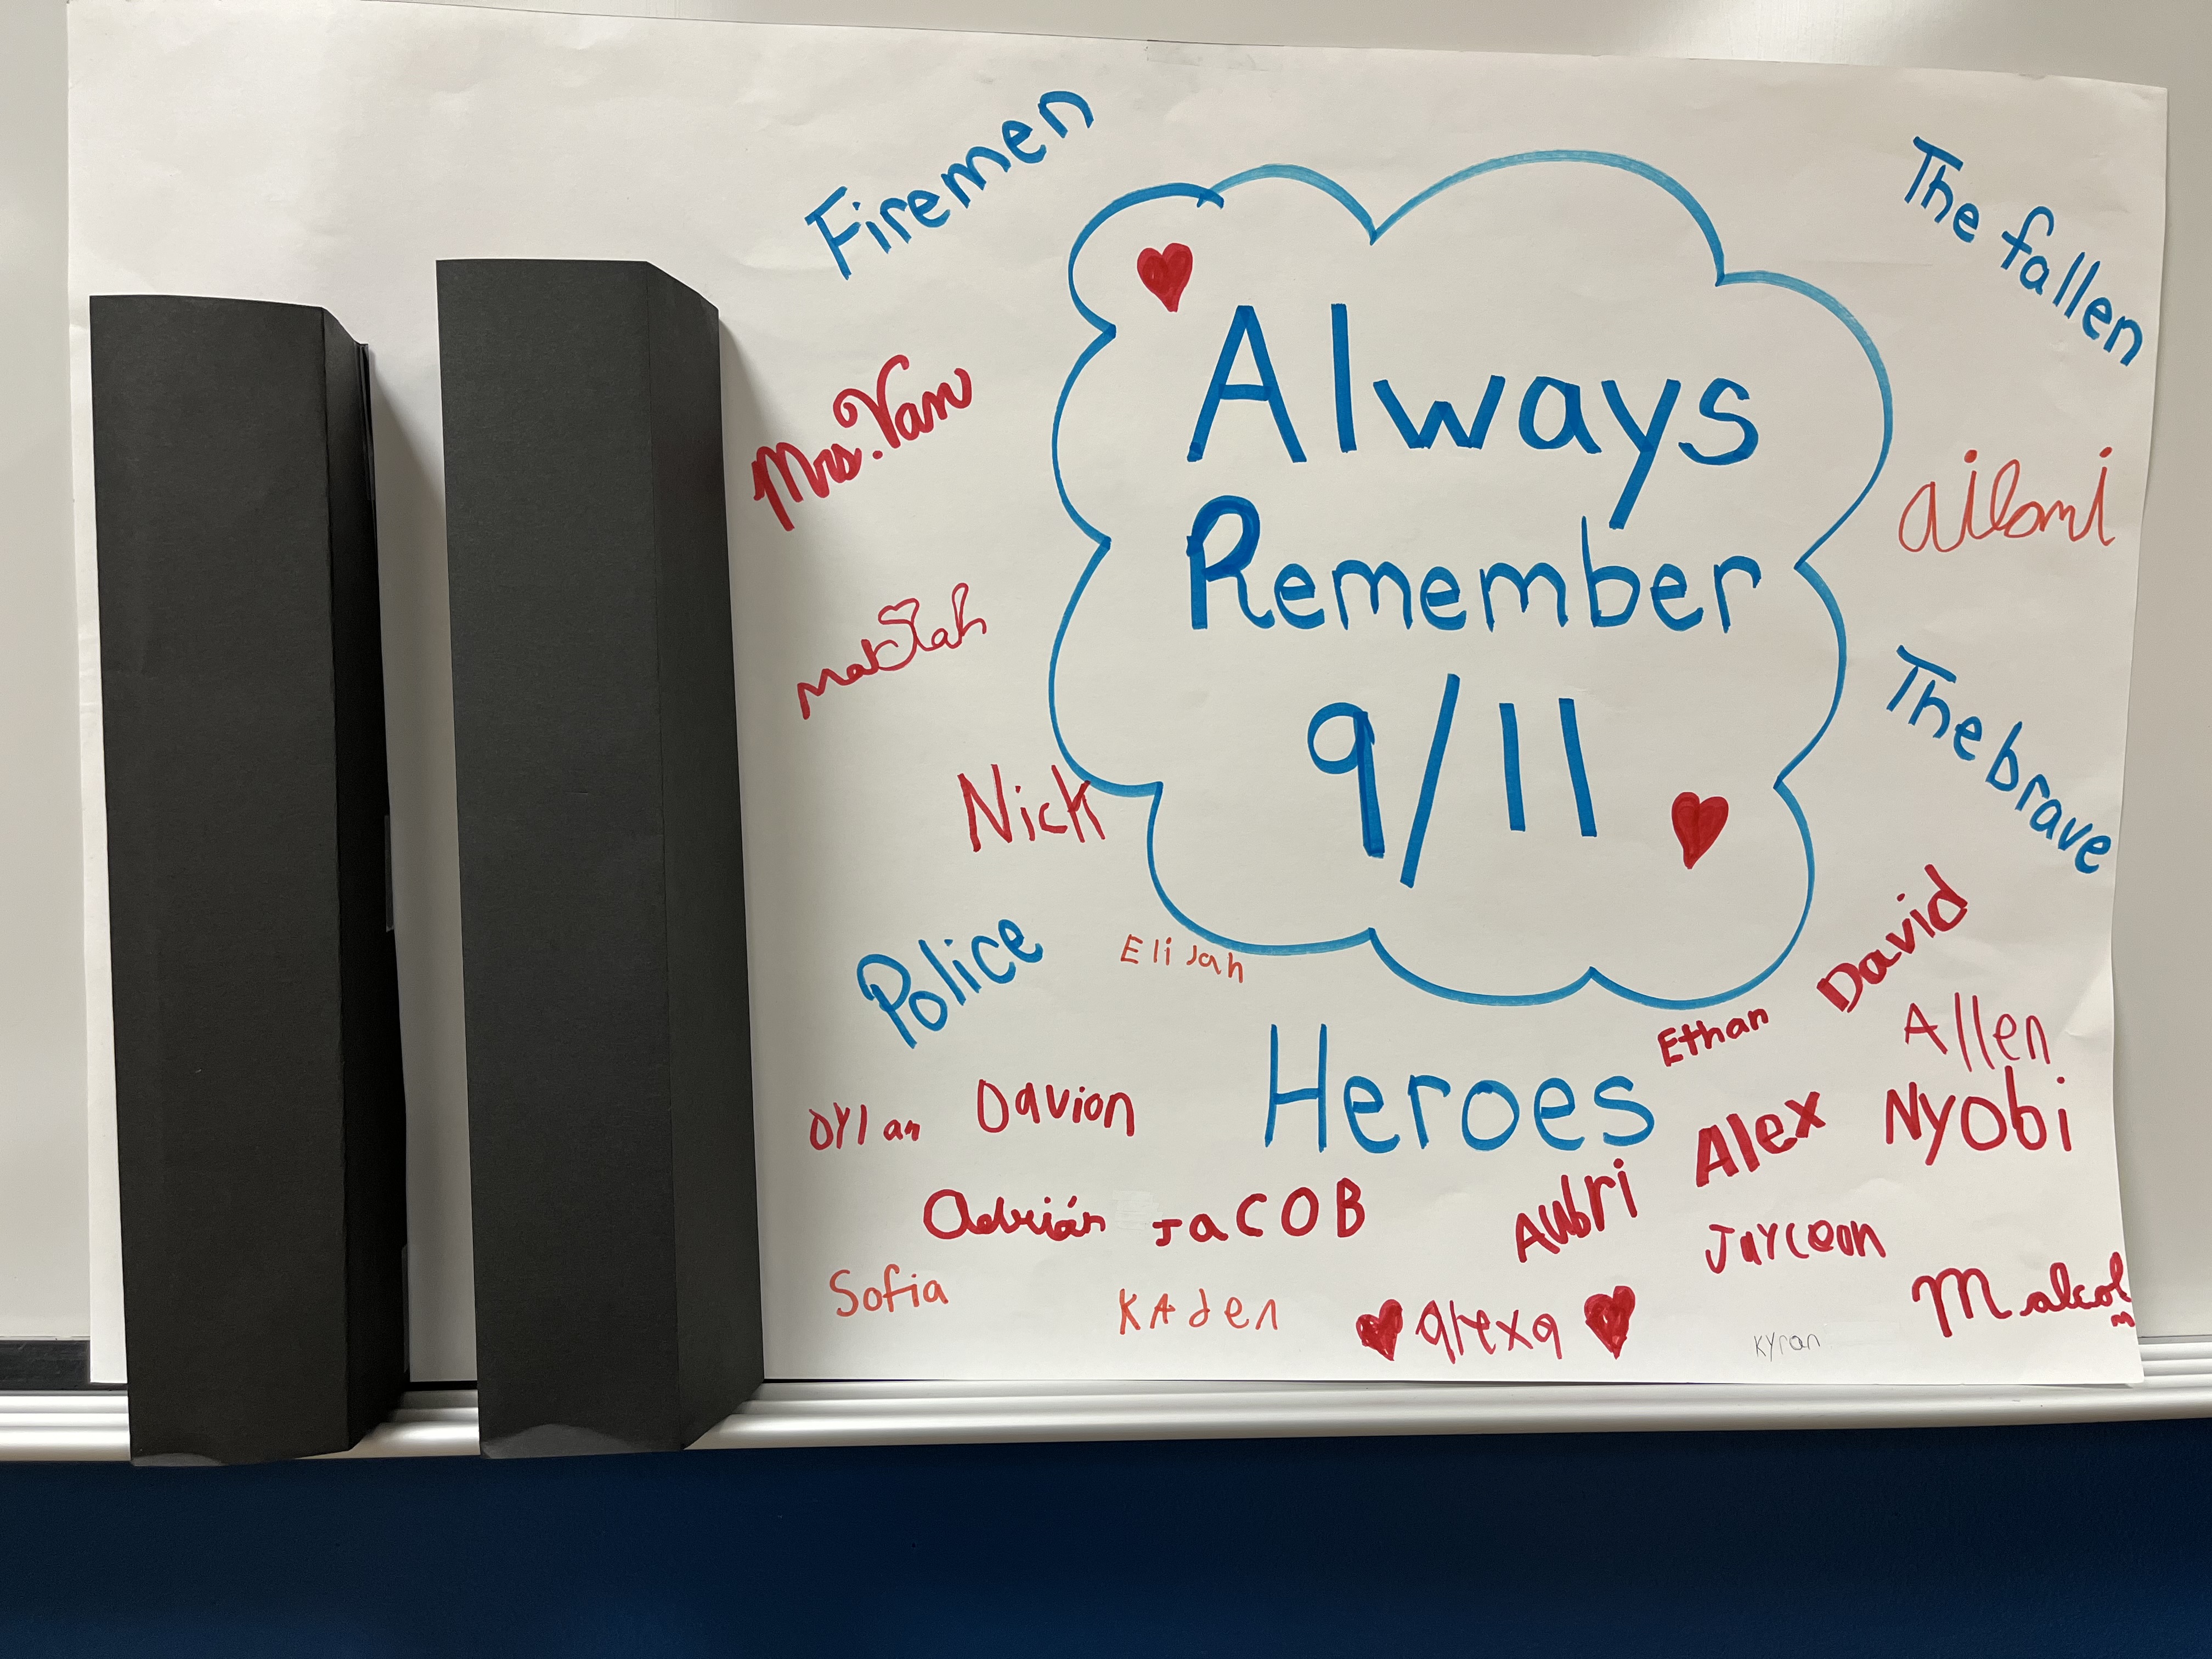 Firemen
The fallen
Always
Remember
9/11
Mrs. Van
Nick
The brave
Police
Elijah
David
Ethan
Allen
Heroes
Dylan
Davion
Alex
Nyobi
Adrián
JaCOB
Aubri
Jayceon
Sofia
KAden
alexa
Malcolm
Kyran